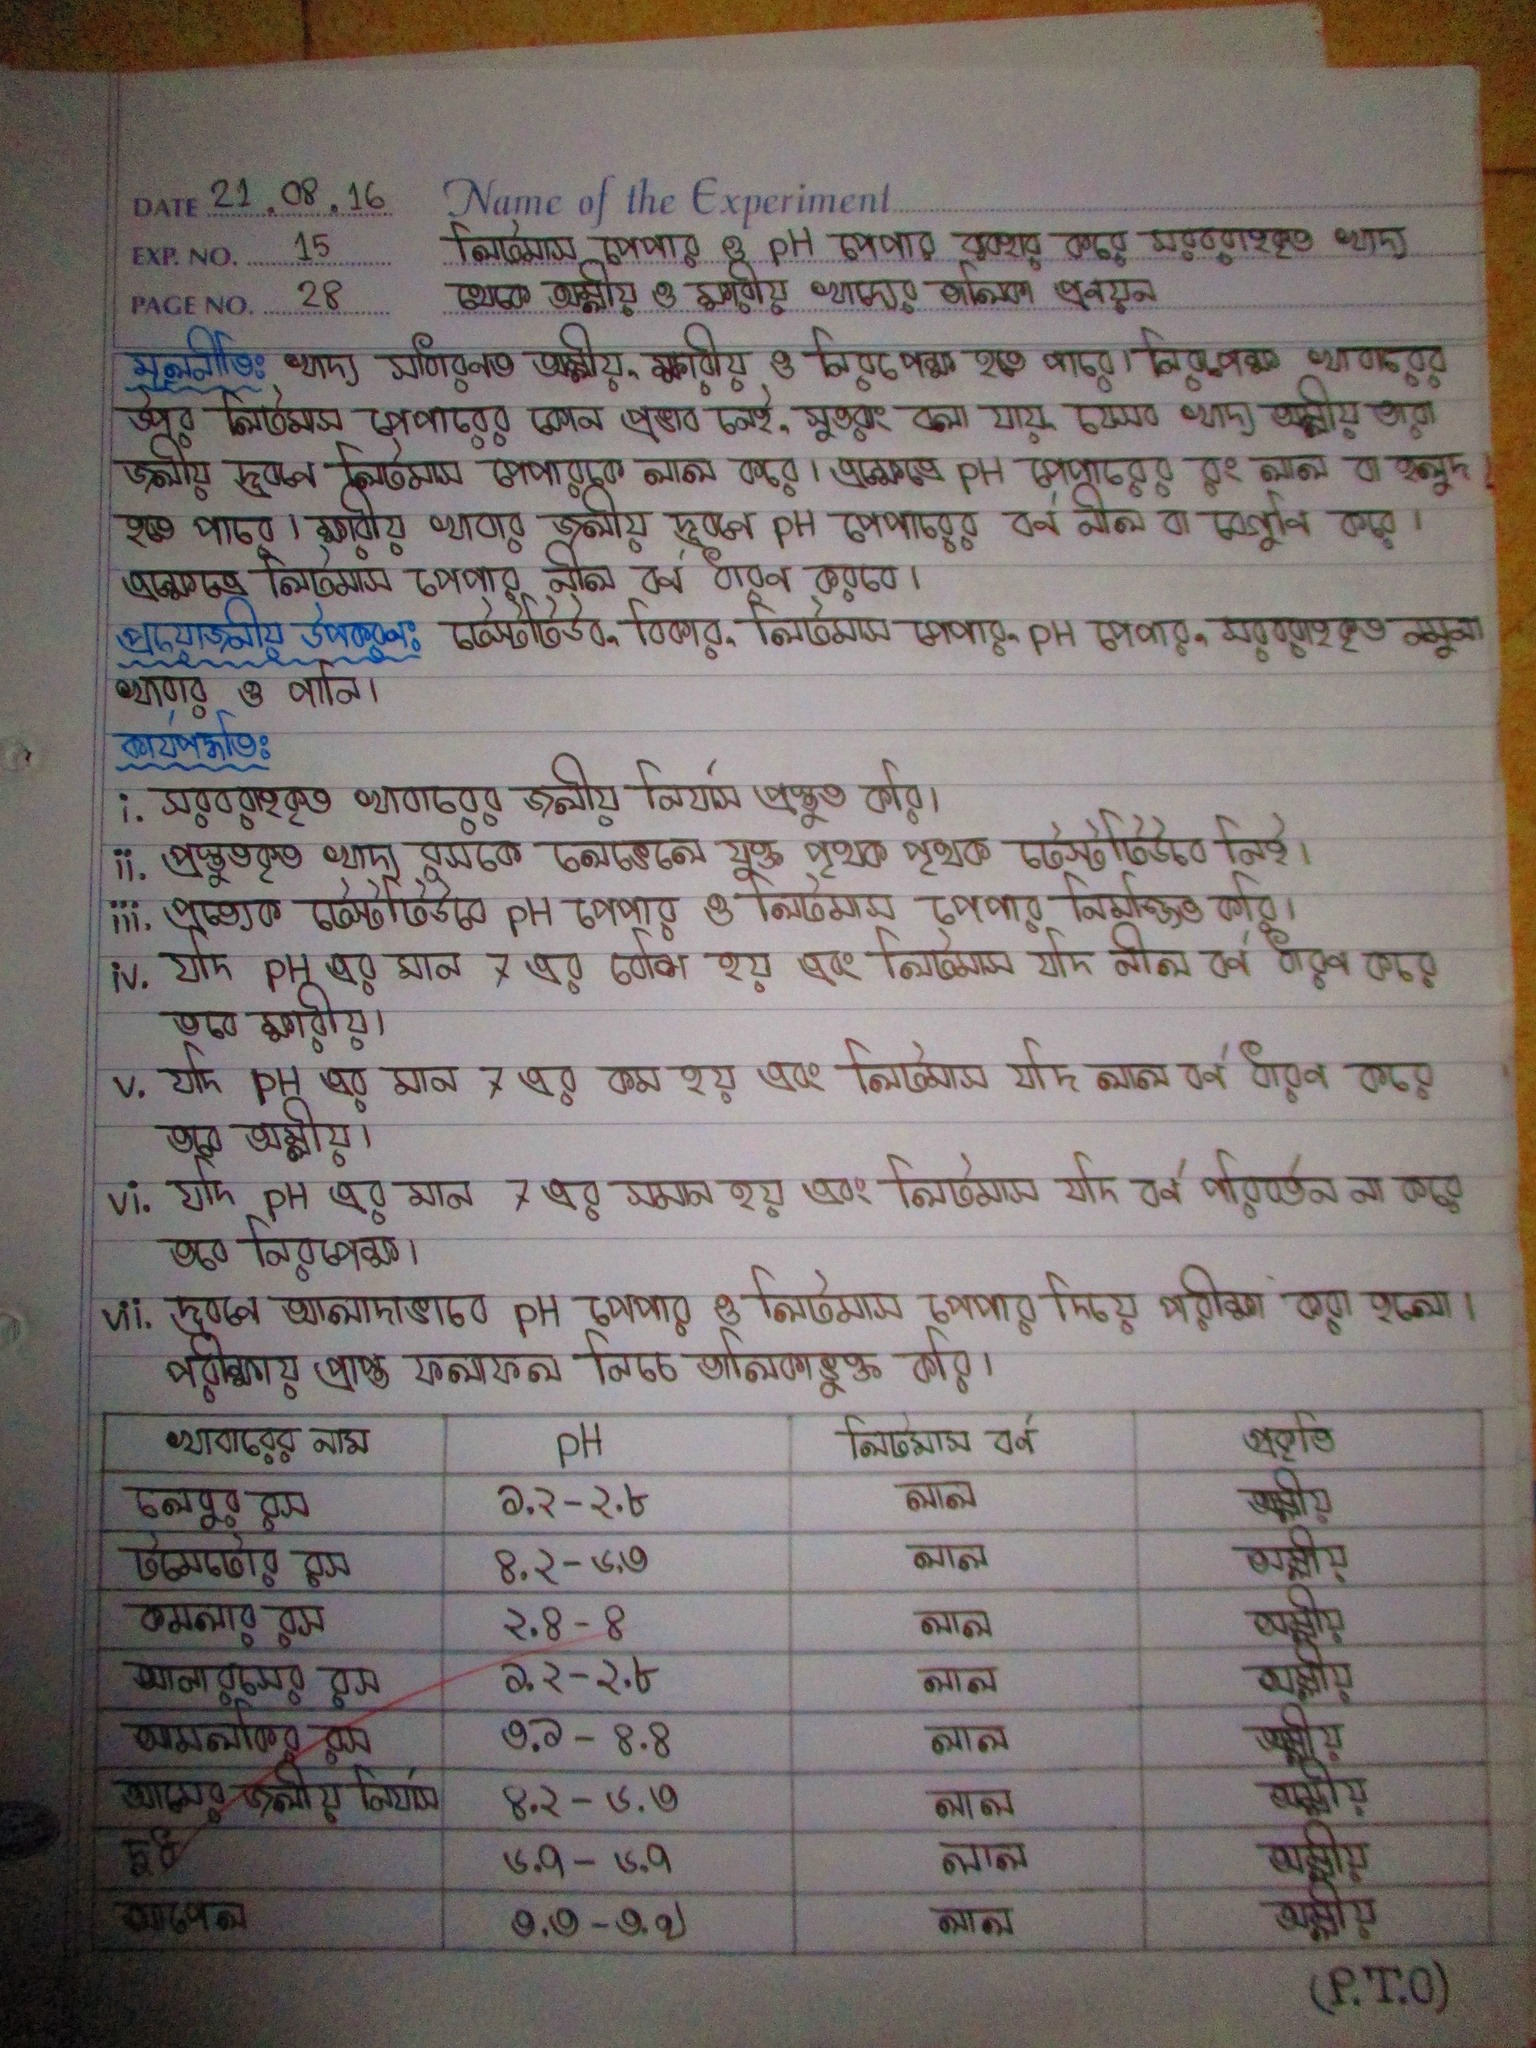 DATE 21.08.16 Name of the Experiment
EXP. NO. 15 লিটমাস পেপার ও pH পেপার ব্যবহার করে সরবরাহকৃত খাদ্য
PAGE NO. 28 থেকে অম্লীয় ও ক্ষারীয় খাদ্যের তালিকা প্রনয়ন
মূলনীতিঃ খাদ্য সাধারনত অম্লীয়, ক্ষারীয় ও নিরপেক্ষ হতে পারে। নিরপেক্ষ খাবারের
উপর লিটমাস পেপারের কোন প্রভাব নেই, সুতরাং বলা যায়, যেসব খাদ্য অম্লীয় তারা
জলীয় দ্রবণে লিটমাস পেপারকে লাল করে। এক্ষেত্রে pH পেপারের রং লাল বা হলুদ
হতে পারে। ক্ষারীয় খাবার জলীয় দ্রবণে pH পেপারের বর্ণ নীল বা বেগুনি করে।
এক্ষেত্রে লিটমাস পেপার নীল বর্ণ ধারণ করবে।
প্রয়োজনীয় উপকরণঃ টেস্টটিউব, বিকার, লিটমাস পেপার, pH পেপার, সরবরাহকৃত নমুনা
খাবার ও পানি।
কার্যপদ্ধতিঃ
i. সরবরাহকৃত খাবারের জলীয় নির্যাস প্রস্তুত করি।
ii. প্রস্তুতকৃত খাদ্য রসকে লেভেল যুক্ত পৃথক পৃথক টেস্টটিউবে নিই।
iii. প্রত্যেক টেস্টটিউবে pH পেপার ও লিটমাস পেপার নিমজ্জিত করি।
iv. যদি pH এর মান 7 এর বেশি হয় এবং লিটমাস যদি নীল বর্ণ ধারণ করে
তবে ক্ষারীয়।
v. যদি pH এর মান 7 এর কম হয় এবং লিটমাস যদি লাল বর্ণ ধারণ করে
তবে অম্লীয়।
vi. যদি pH এর মান 7 এর সমান হয় এবং লিটমাস যদি বর্ণ পরিবর্তন না করে
তবে নিরপেক্ষ।
vii. দ্রবণে আলাদাভাবে pH পেপার ও লিটমাস পেপার দিয়ে পরীক্ষা করা হলো।
পরীক্ষায় প্রাপ্ত ফলাফল নিচে তালিকাভুক্ত করি।
খাবারের নাম pH লিটমাস বর্ণ প্রকৃতি
লেবুর রস ২.২-২.৮ লাল অম্লীয়
টমেটোর রস ৪.২-৬.৩ লাল অম্লীয়
কমলার রস ২.৪-৪ লাল অম্লীয়
আনারসের রস ২.২-২.৮ লাল অম্লীয়
আমলকির রস ৩.৯-৪.৪ লাল অম্লীয়
আমের জলীয় নির্যাস ৪.২-৬.৩ লাল অম্লীয়
দুধ ৬.৭-৬.৭ লাল অম্লীয়
আপেল ৩.৩-৩.৭ লাল অম্লীয়
(P.T.O)